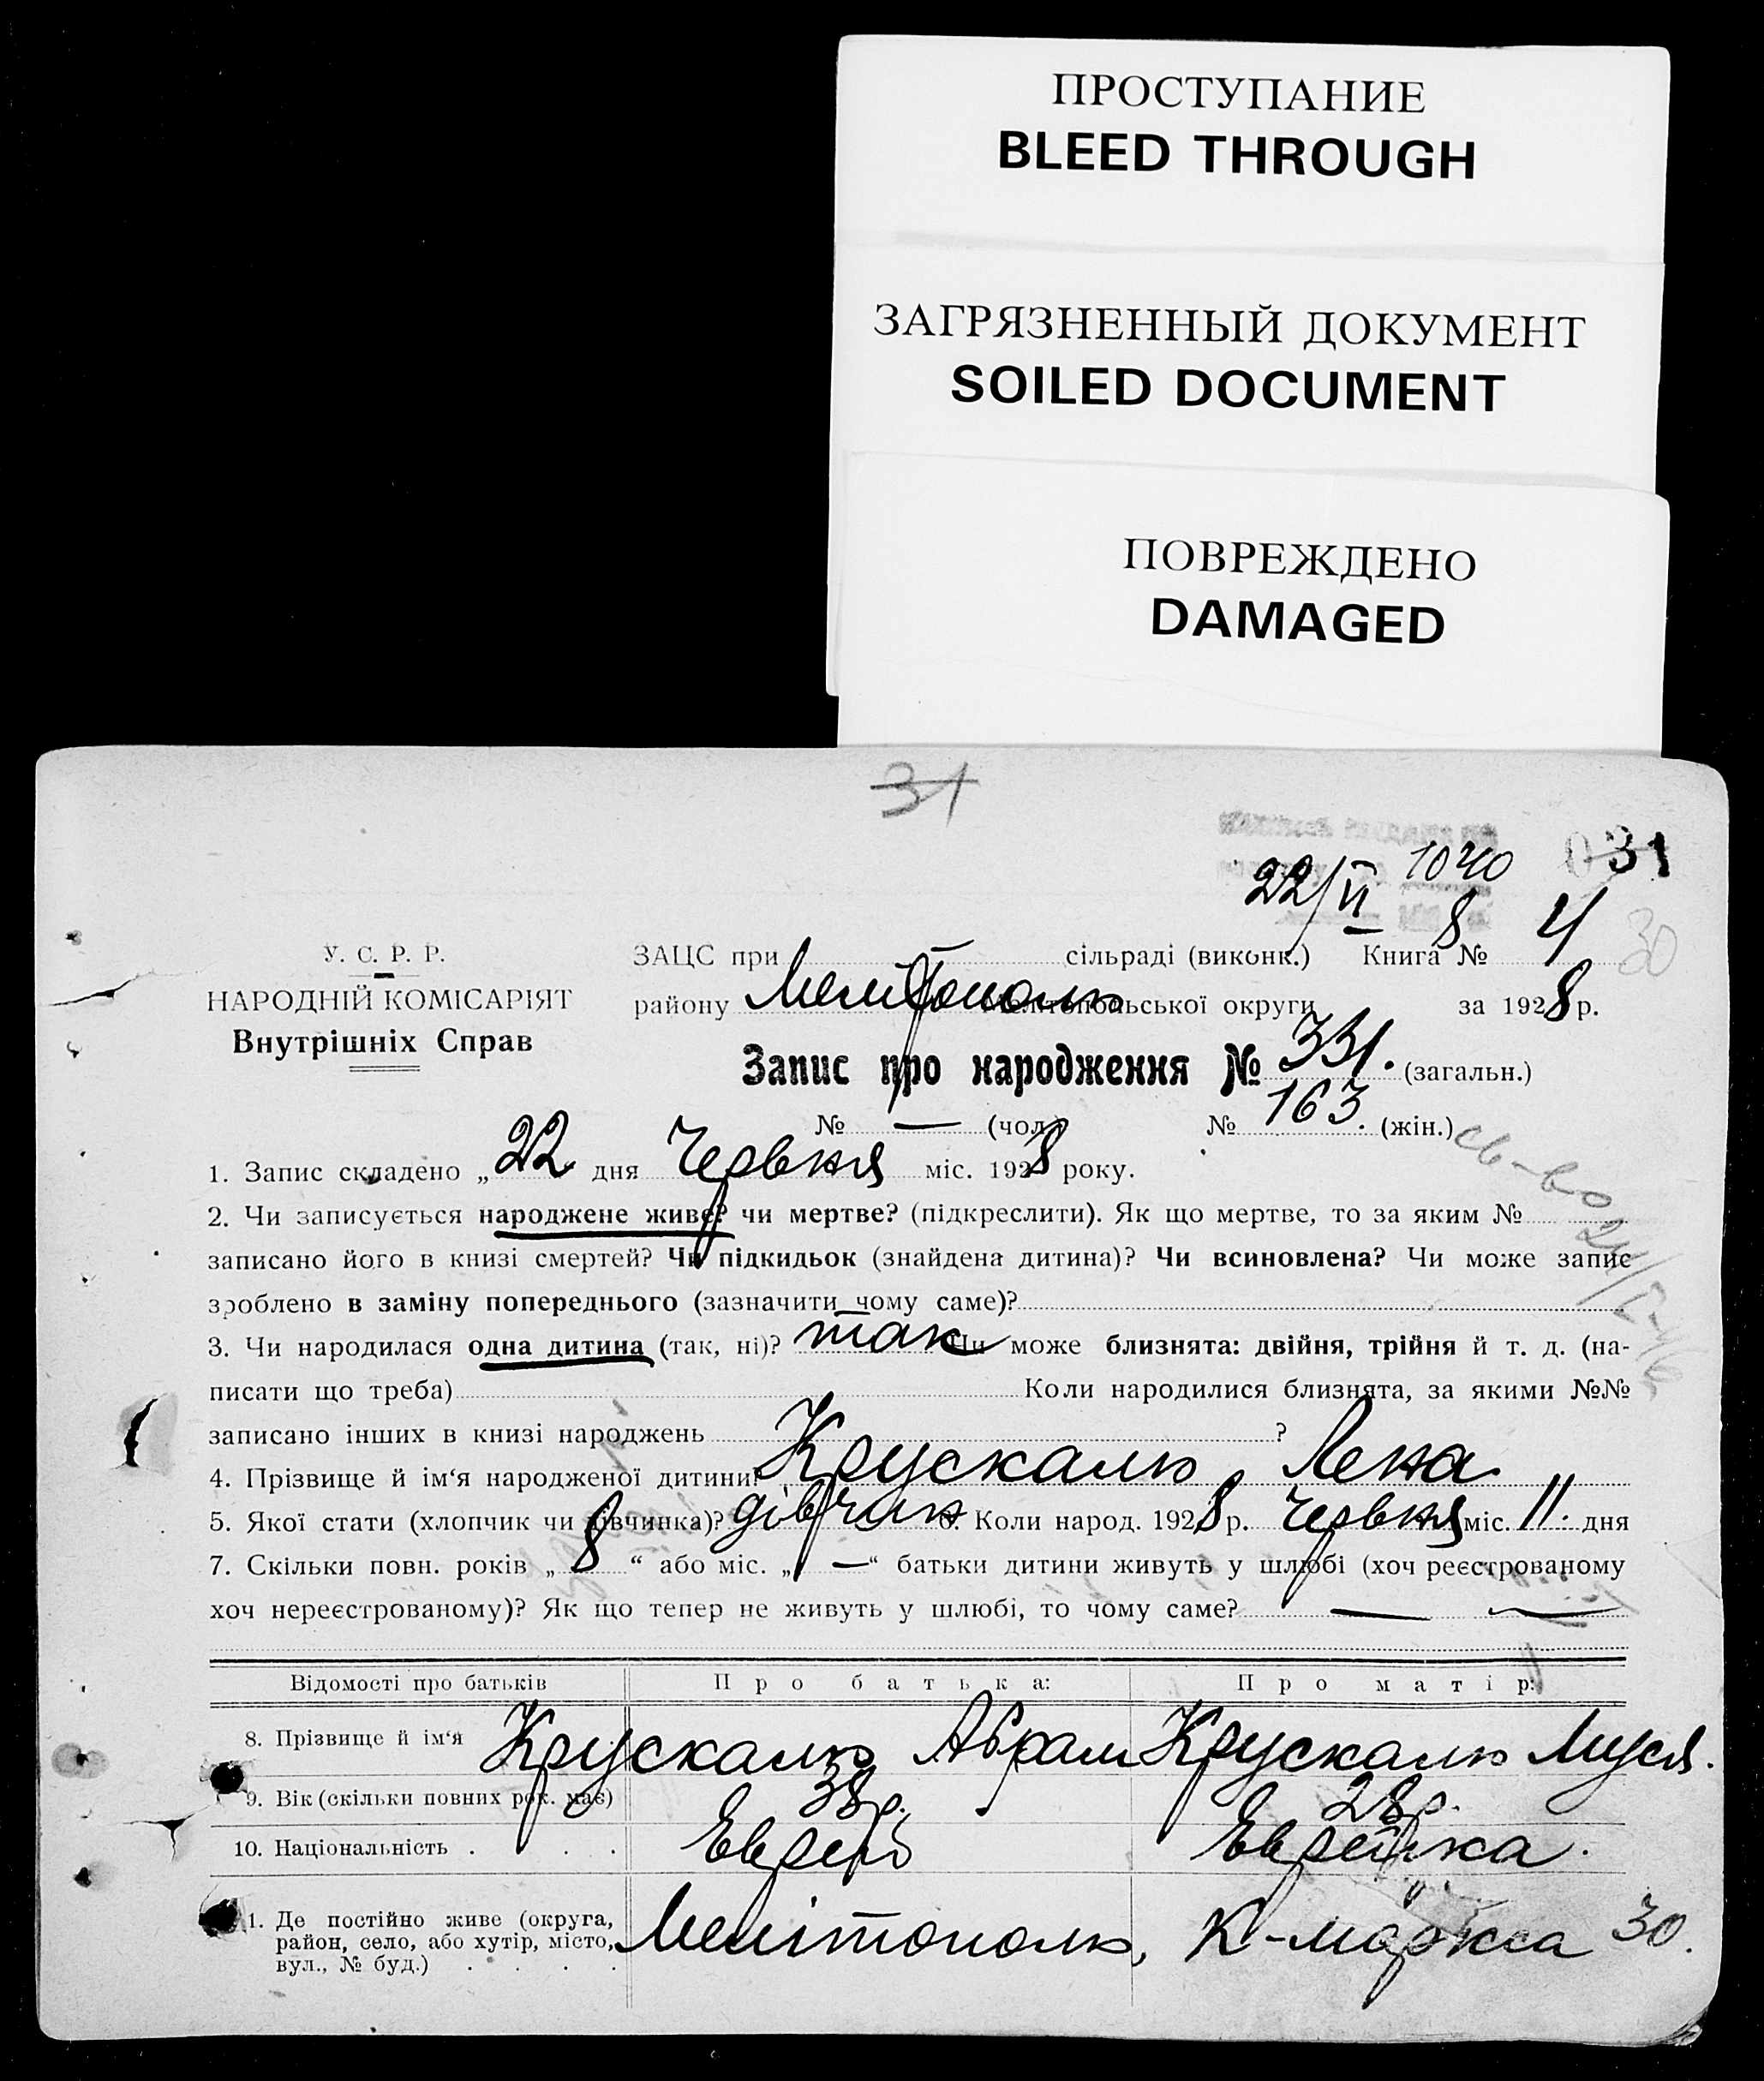 ПРОСТУПАНИЕ
BLEED THROUGH
ЗАГРЯЗНЕННЫЙ ДОКУМЕНТ
SOILED DOCUMENT
ПОВРЕЖДЕНО
DAMAGED
31
1040 031
22/VI 8 30
У. С. Р. Р.
НАРОДНІЙ КОМІСАРІЯТ
Внутрішніх Справ
ЗАЦС при сільраді (виконк.) Книга № 4
району Мелітополь Мелітопольської округи за 1928 р.
Запис про народження № 331. (загальн.)
№ — (чол.) № 163. (жін.)
1. Запис складено „22 дня Червня міс. 1928 року.
св-во
2. Чи записується народжене живе? чи мертве? (підкреслити). Як що мертве, то за яким №
записано його в книзі смертей? Чи підкидьок (знайдена дитина)? Чи всиновлена? Чи може запис
зроблено в заміну попереднього (зазначити чому саме)?
3. Чи народилася одна дитина (так, ні)? так Чи може близнята: двійня, трійня й т. д. (на-
писати що треба) Коли народилися близнята, за якими №№
записано інших в книзі народжень ?
4. Прізвище й ім‘я народженої дитини? Крускаль Лена
5. Якої стати (хлопчик чи дівчинка)? дівчин 6. Коли народ. 1928 р. Червня міс. 11. дня
7. Скільки повн. років „ 8 “ або міс. „ — “ батьки дитини живуть у шлюбі (хоч реєстрованому
хоч нереєстрованому)? Як що тепер не живуть у шлюбі, то чому саме? — —
Відомості про батьків Про батька: Про матір:
8. Прізвище й ім‘я Крускаль Абрам Крускаль Муся.
9. Вік (скільки повних рок. має) 38 р. 28 р.
10. Національність . . . . Еврей Еврейка.
11. Де постійно живе (округа,
район, село, або хутір, місто,
вул., № буд.) . . . .
Мелітополь, К-маркса 30.